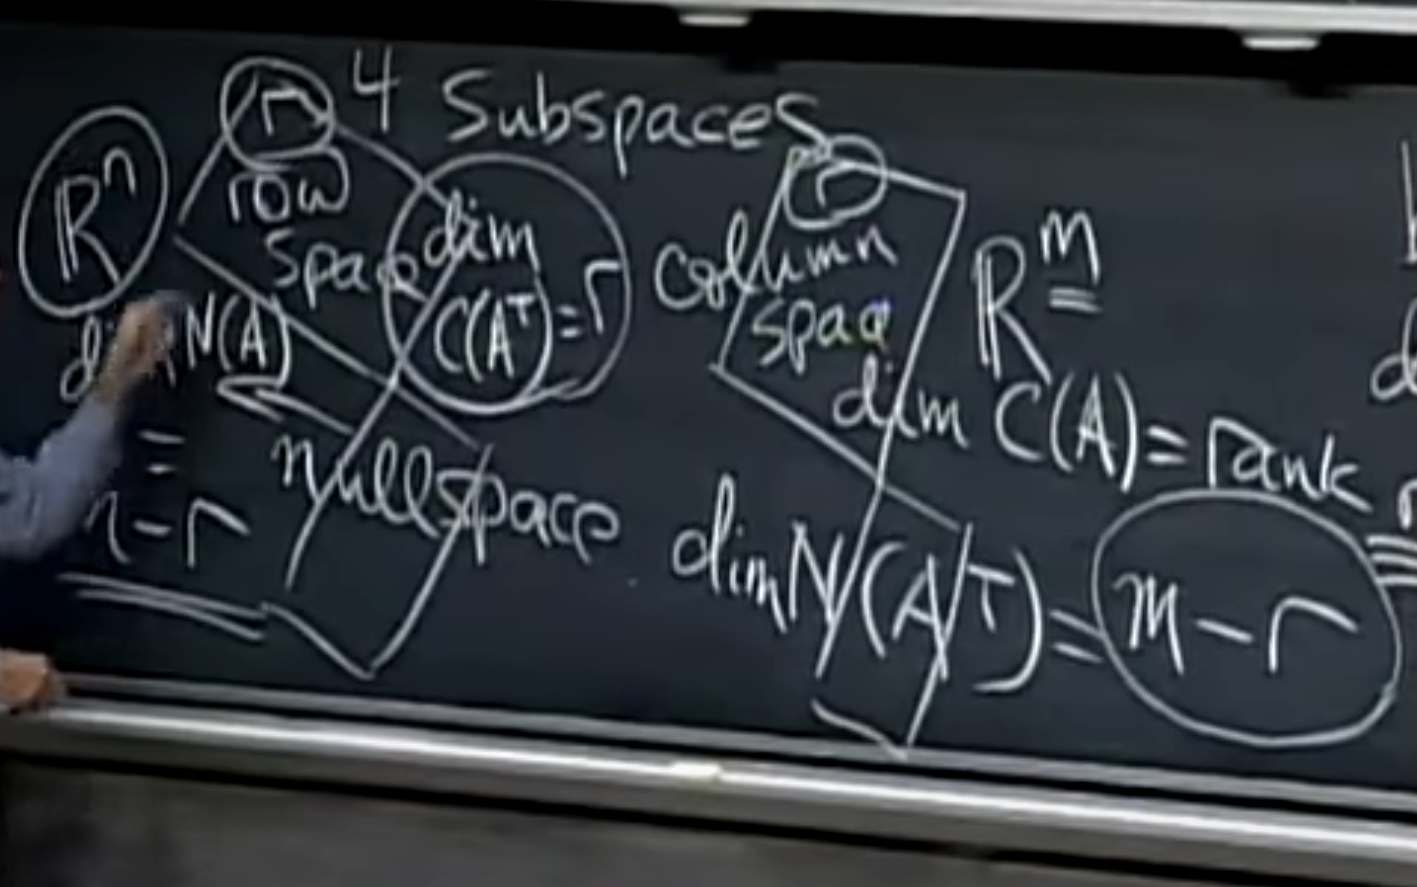 4 Subspaces
R^n
r
row
space
dim
C(A^T) = r
N(A)
=
n-r
nullspace
r
column
space
R^m
dim C(A) = rank r
dim N(A^T) = m-r